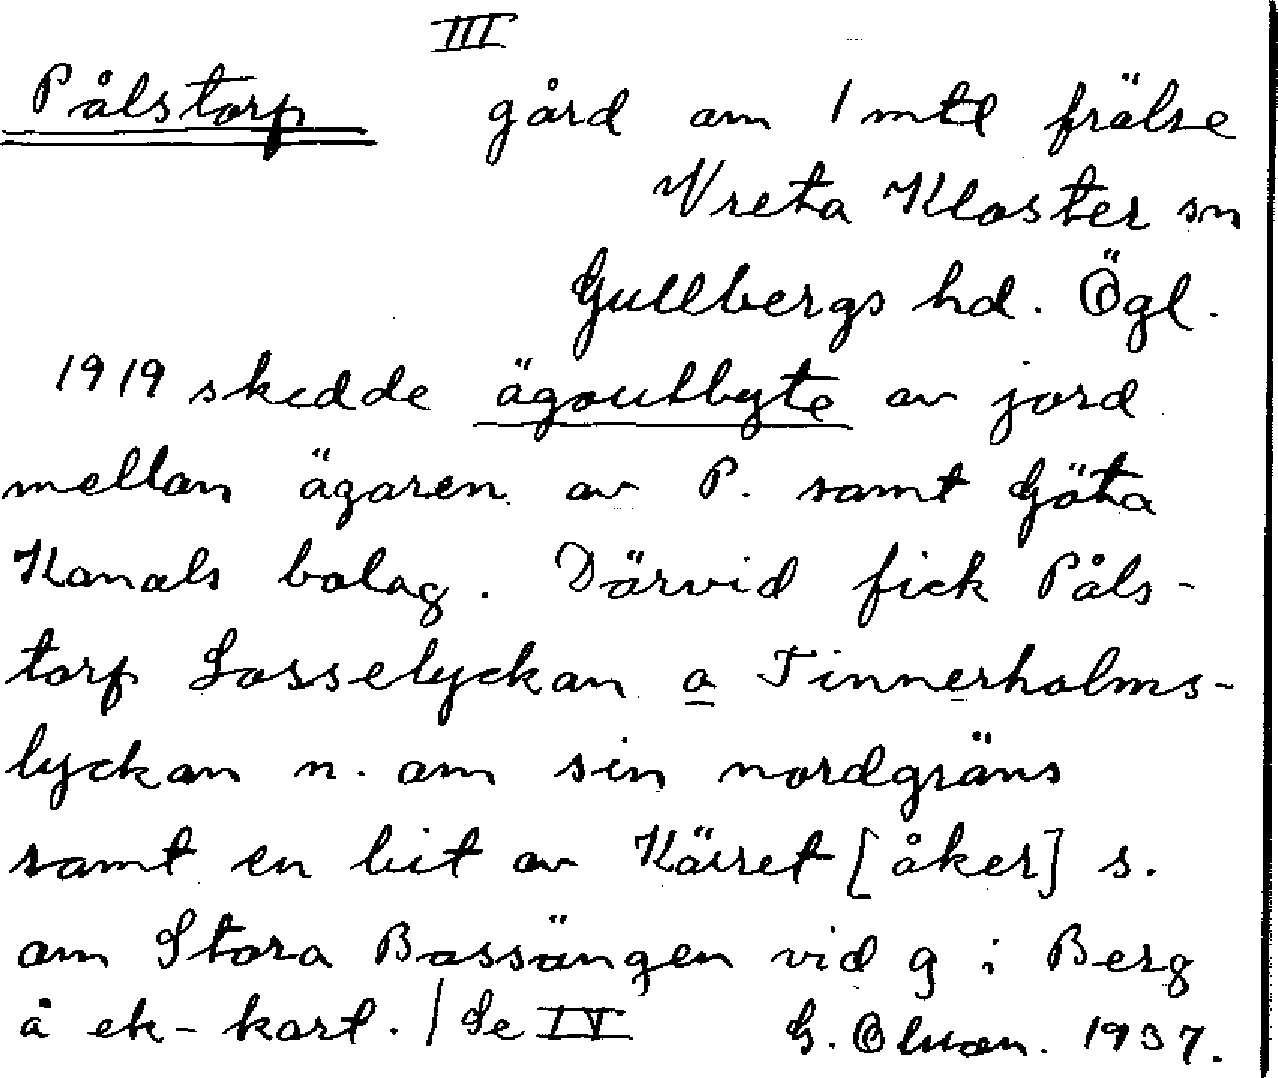 III
Pålstorp gård om 1 mtl frälse
Vreta Kloster sn
Gullbergs hd. Ögl.
1919 skedde ägoutbyte av jord
mellan ägaren av P. samt Göta
Kanals bolag. Därvid fick Påls-
torp Lasselyckan o Tinnerholms-
lyckan n. om sin nordgräns
samt en bit av Kärret [åker] s.
om Stora Bassängen vid g i Berg
å ek-kart. / Se IV G. 1937.